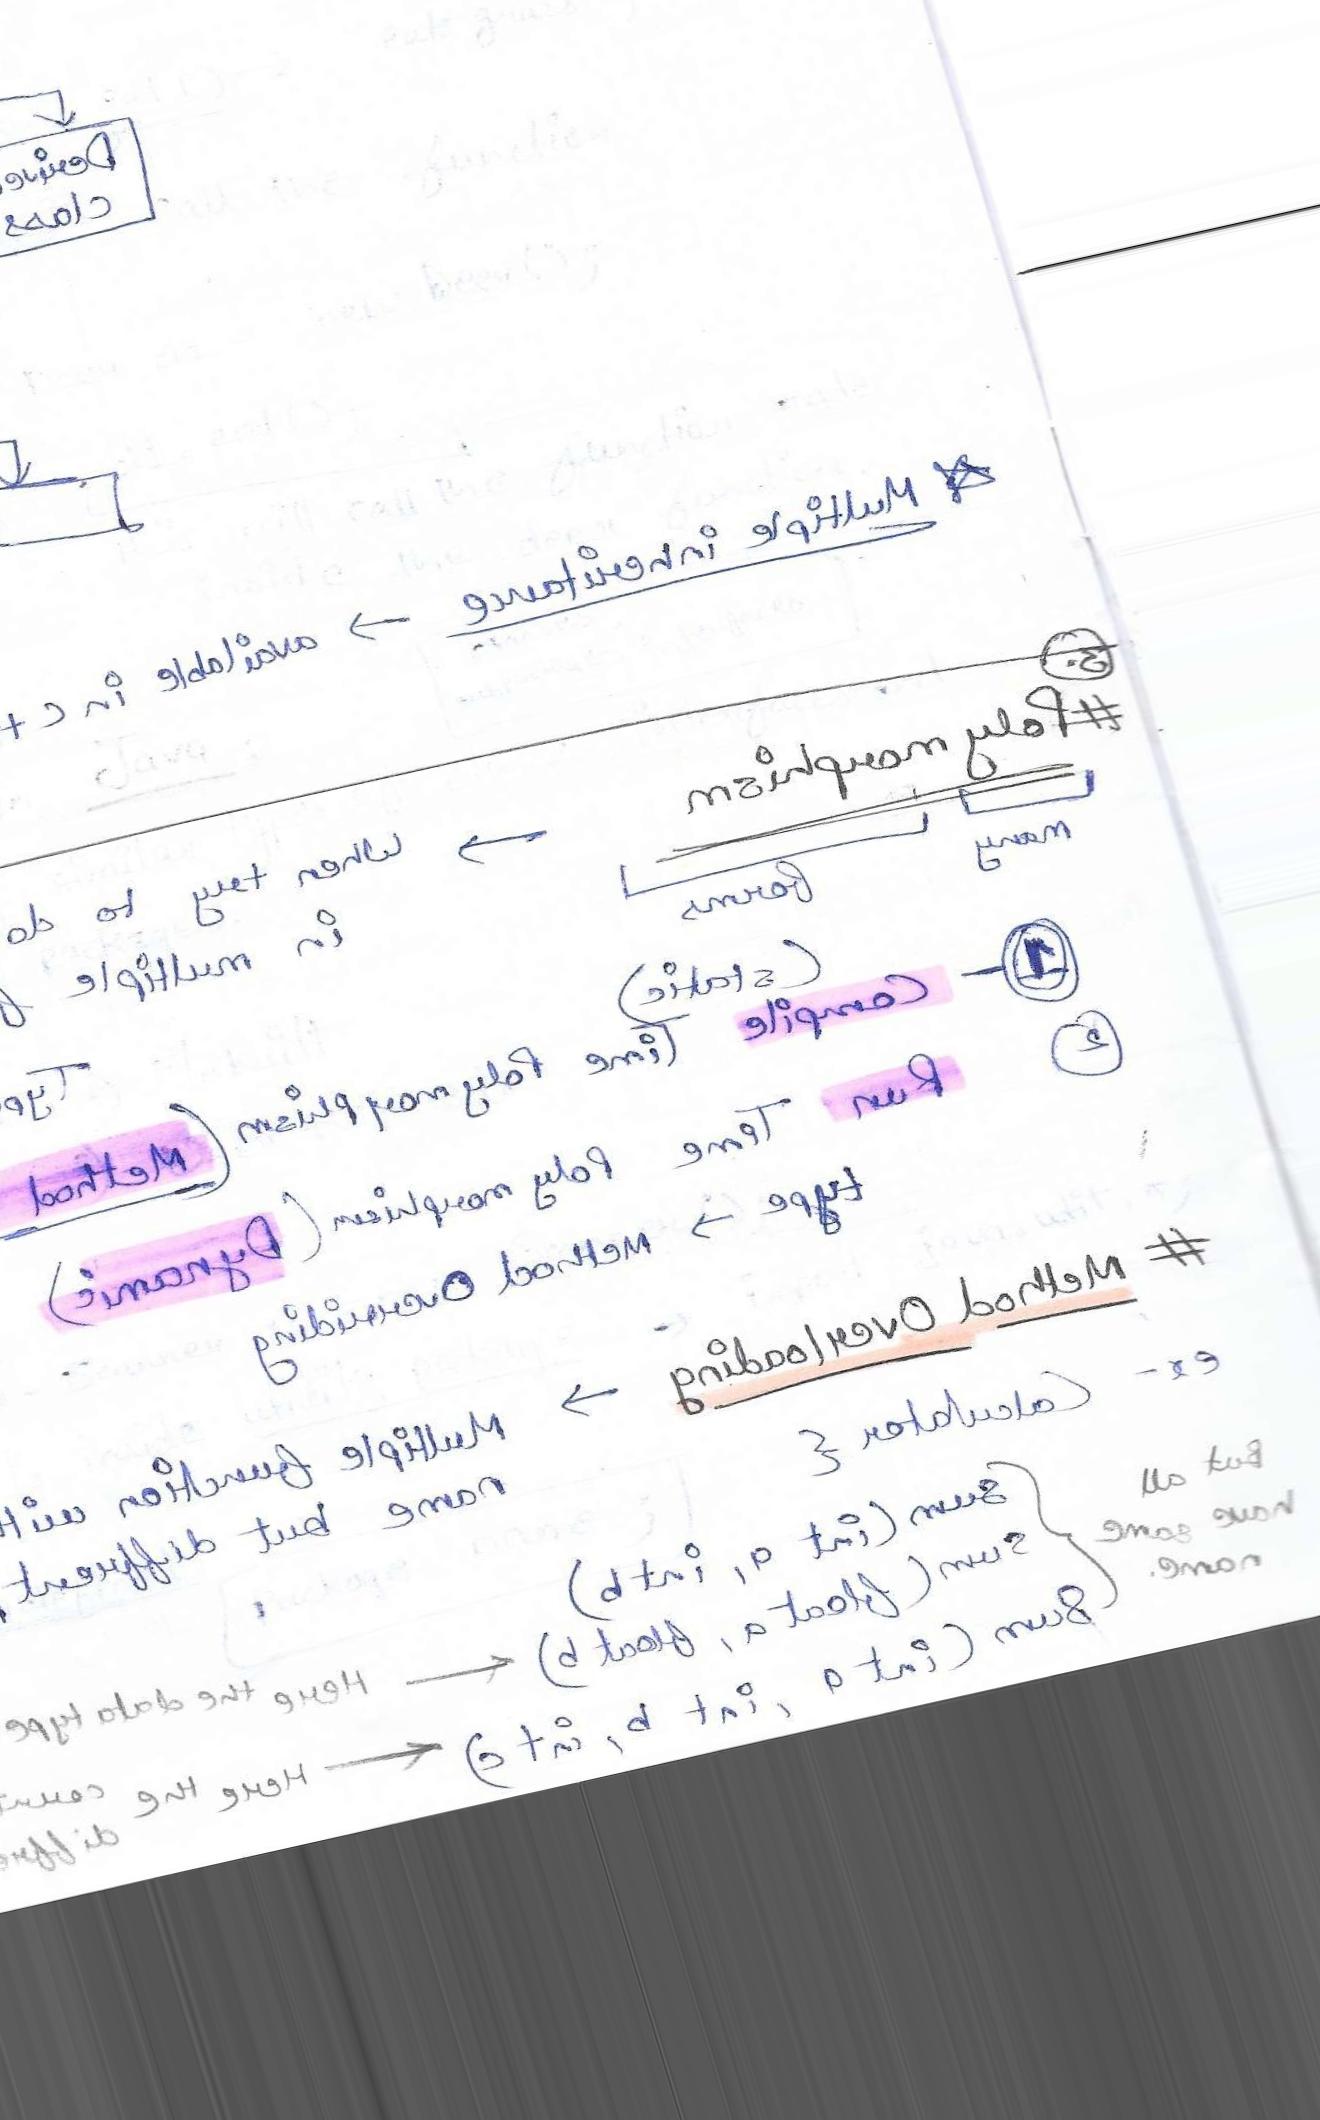 Derive
class
☆ Multiple inheritance → available in C+
3.
# Polymorphism → When try to do
many forms in multiple
Type
1 - Compile Time Polymorphism (Method
(static)
2 Run Time Polymorphism (Dynamic)
type → Method Overriding
# Method Overloading → Multiple function with
name but different
ex- Calculator {
Sum (int a, int b)
Sum (float a, float b) ← Here the data type
Sum (int a, int b, int c) ← Here the count
diffre
But all
have same
name.